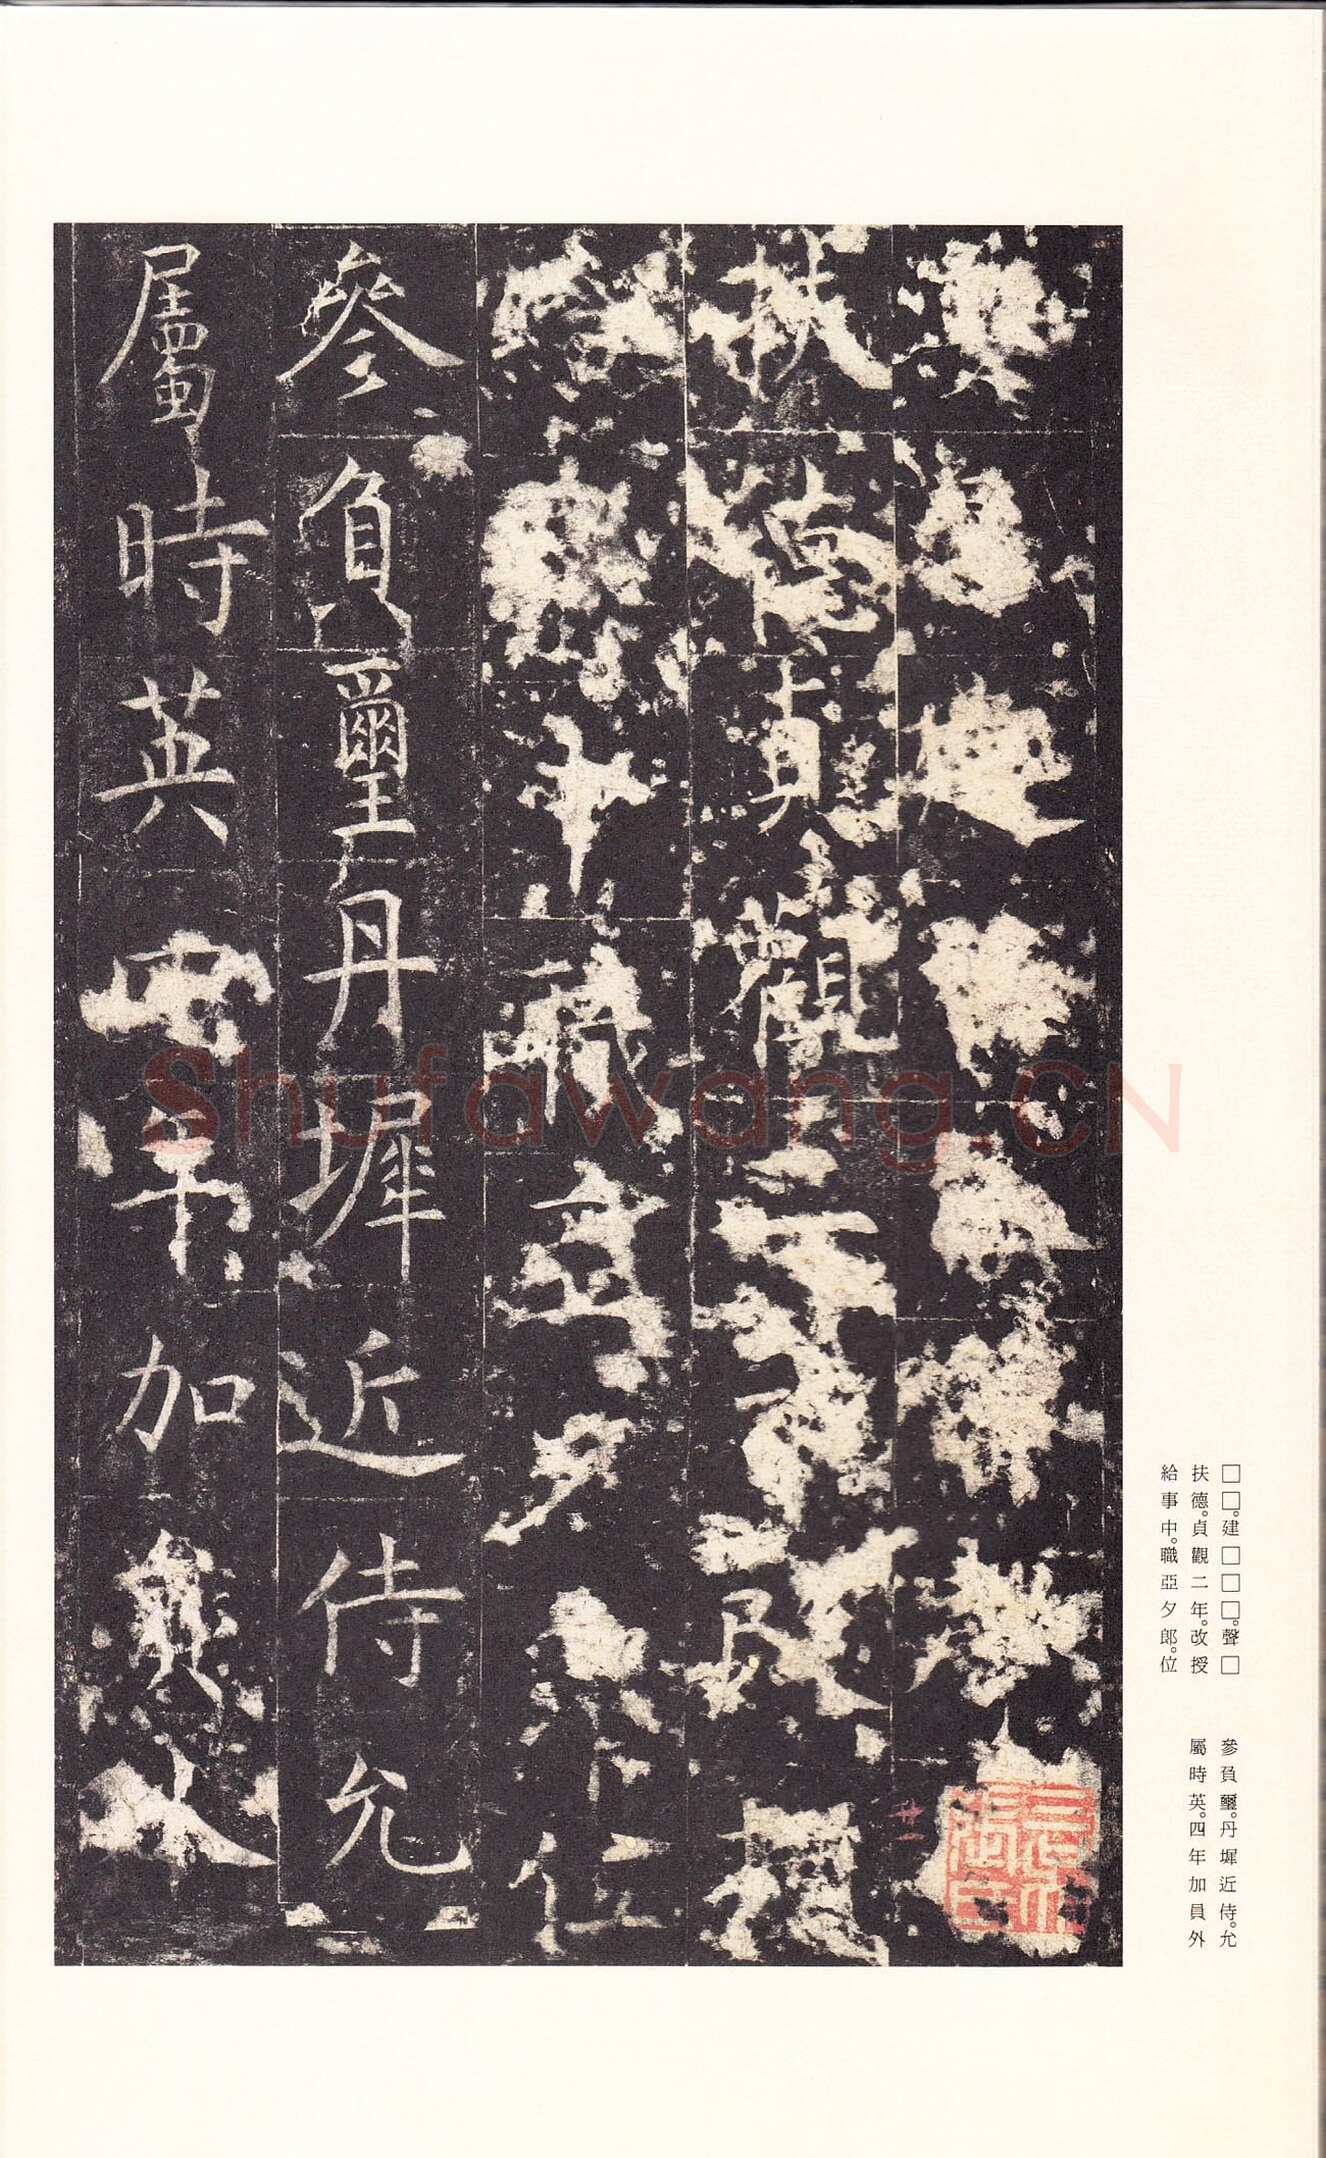 扶德貞觀二年改授
給事中職亞夕郎位
參負璽丹墀近侍允
屬時英四年加員外
廿一
□□。建□□□。聲□
扶德。貞觀二年。改授
給事中。職亞夕郎。位
參負璽。丹墀近侍。允
屬時英。四年加員外
Shufawang.CN